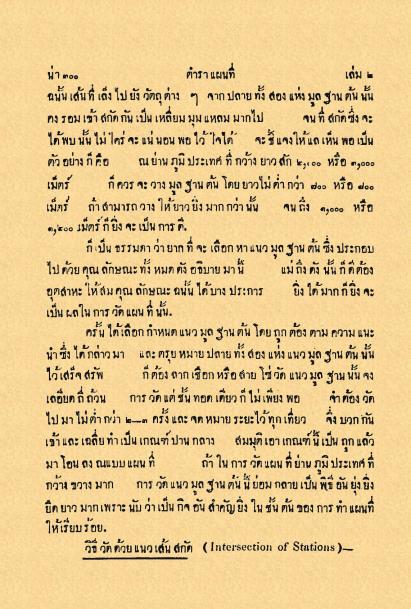 น่า ๓๐๐ ตำรา แผนที่ เล่ม ๒
ฉนั้น เส้น ที่ เล็ง ไป ยัง วัตถุ ต่าง ๆ จาก ปลาย ทั้ง สอง แห่ง มูล ฐาน ต้น นั้น
คง รอม เข้า สกัด กัน เป็น เหลี่ยม มุม แหลม มาก ไป จน ที่ สกัด ซึ่ง จะ
ได้ พบ นั้น ไม่ ใคร่ จะ แน่ นอน พอ ไว้ ใจ ได้ จะ ชี้ แจง ให้ แล เห็น พอ เป็น
ตัว อย่าง ก็ คือ ณ ย่าน ภูมิ ประเทศ ที่ กว้าง ยาว สัก ๒,๐๐๐ หรือ ๓,๐๐๐
เม็ตร์ ก็ ควร จะ วาง มูล ฐาน ต้น โดย ยาว ไม่ ต่ำ กว่า ๗๐๐ หรือ ๘๐๐
เม็ตร์ ถ้า สามารถ วาง ให้ ยาว ยิ่ง มาก กว่า นั้น จน ถึง ๑,๐๐๐ หรือ
๑,๒๐๐ เม็ตร์ ก็ ยิ่ง จะ เป็น การ ดี.
ก็ เป็น ธรรมดา ว่า ยาก ที่ จะ เลือก หา แนว มูล ฐาน ต้น ซึ่ง ประกอบ
ไป ด้วย คุณ ลักษณะ ทั้ง หมด ดัง อธิบาย มา นี้ แม่ ถึง ดัง นั้น ก็ ดี ต้อง
อุตสาหะ ให้ สม คุณ ลักษณะ ฉนั้น ได้ บาง ประการ ยิ่ง ได้ มาก ก็ ยิ่ง จะ
เป็น ผล ใน การ วัด แผน ที่ นั้น.
ครั้น ได้ เลือก กำหนด แนว มูล ฐาน ต้น โดย ถูก ต้อง ตาม ความ แนะ
นำ ซึ่ง ได้ กล่าว มา และ ตรุย หมาย ปลาย ทั้ง สอง แห่ง แนว มูล ฐาน ต้น นั้น
ไว้ เสร็จ สรัพ ก็ ต้อง ลาก เชือก หรือ สาย โซ่ วัด แนว มูล ฐาน นั้น จง
เลอียด ถี่ ถ้วน การ วัด แต่ ชั้น ทอด เดียว ก็ ไม่ เพียง พอ จำ ต้อง วัด
ไป มา ไม่ ต่ำ กว่า ๒—๓ ครั้ง และ จด หมาย ระยะ ไว้ ทุก เที่ยว จึ่ง บวก กัน
เข้า และ เฉลี่ย ทำ เป็น เกณฑ์ ปาน กลาง สมมุติ เอา เกณฑ์ นี้ เป็น ถูก แล้ว
มา โอน ลง ณ แบบ แผน ที่ ถ้า ใน การ วัด แผน ที่ ย่าน ภูมิ ประเทศ ที่
กว้าง ขวาง มาก การ วัด มูล ฐาน ต้น นี้ ย่อม กลาย เป็น พิธี อัน ยุ่ง ยิ่ง
ยืด ยาว มาก เพราะ นับ ว่า เป็น กิจ อัน สำคัญ ยิ่ง ใน ชั้น ต้น ของ การ ทำ แผน ที่
ให้ เรียบ ร้อย.
วิธี วัด ด้วย แนว เส้น สกัด (Intersection of Stations)—